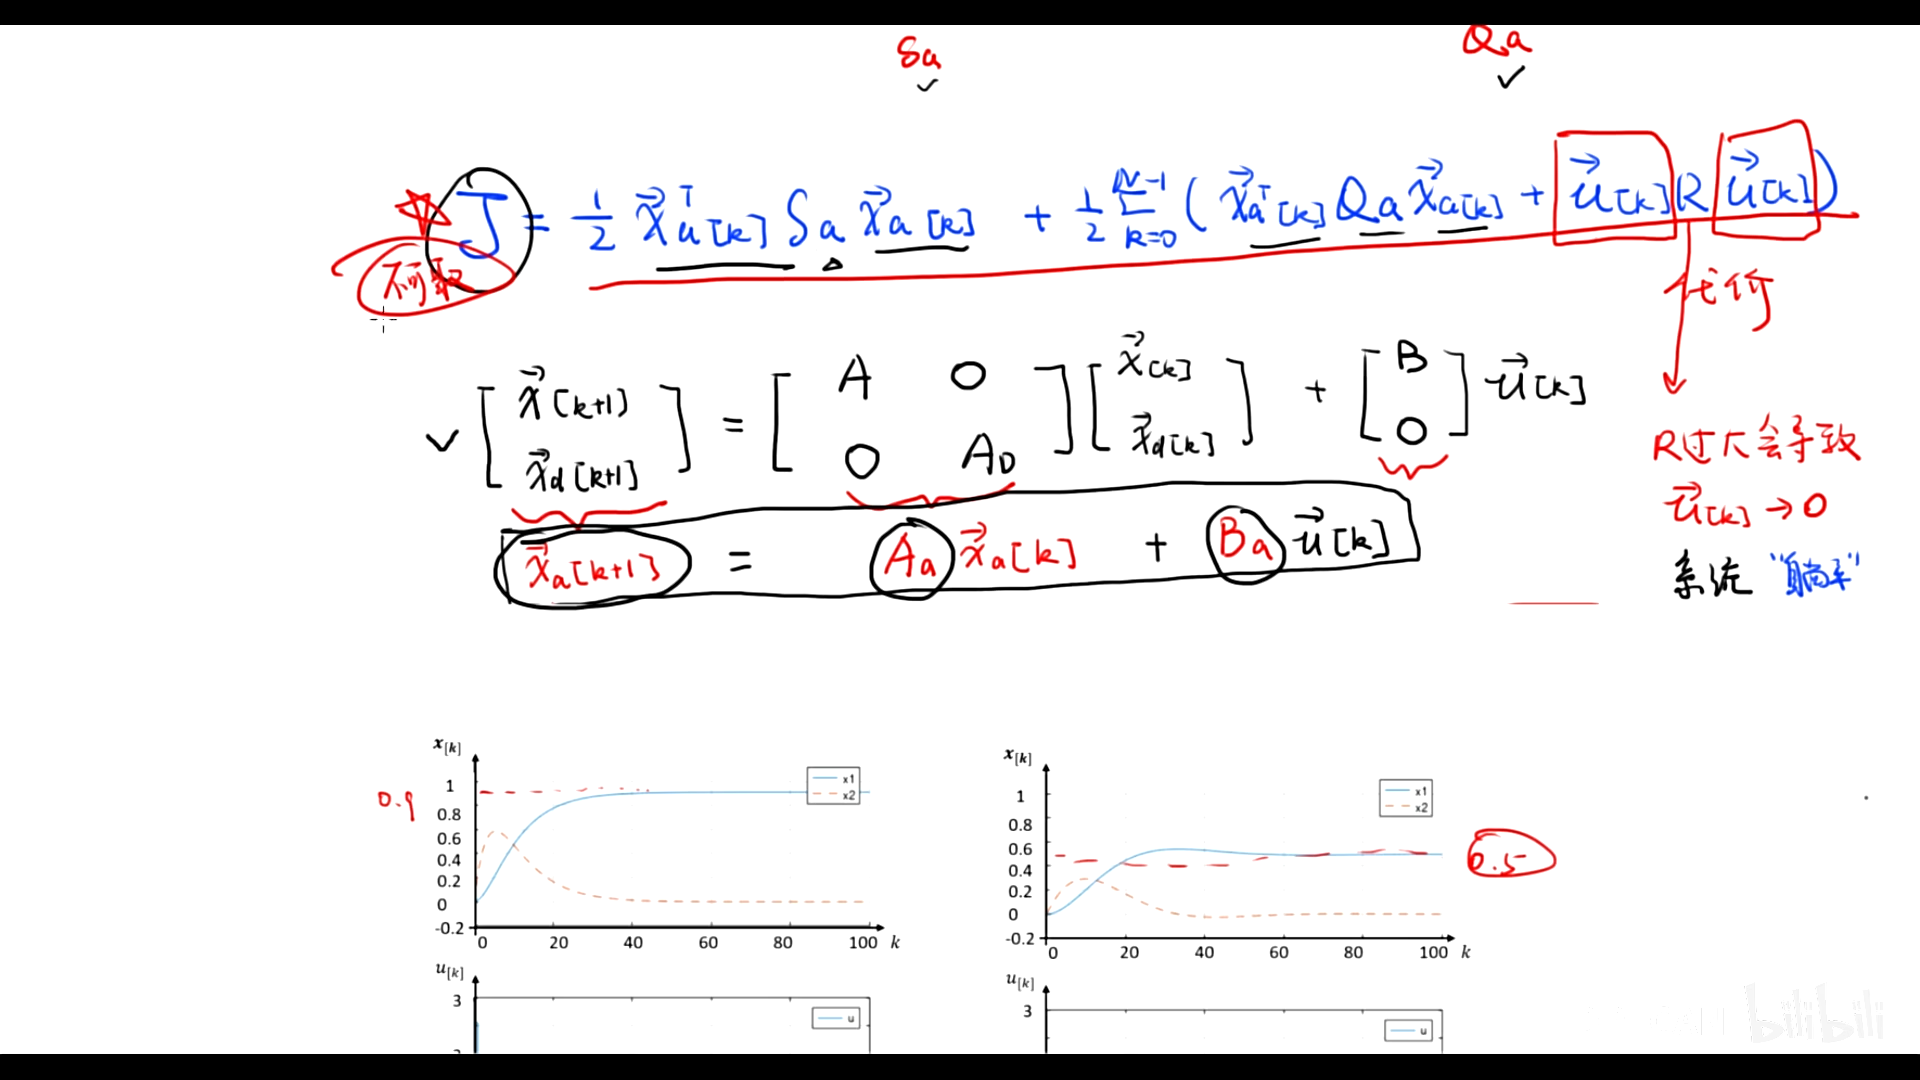 Sa
Qa
J = 1/2 x⃗aᵀ[k] Sa x⃗a[k] + 1/2 Σ_{k=0}^{N-1} ( x⃗aᵀ[k] Qa x⃗a[k] + u⃗[k] R u⃗[k] )
不可取
代价
[ x⃗[k+1] x⃗d[k+1] ] = [ A 0 0 AD ] [ x⃗[k] x⃗d[k] ] + [ B 0 ] u⃗[k]
x⃗a[k+1] = Aa x⃗a[k] + Ba u⃗[k]
R过大会导致
u⃗[k] → 0
系统 "躺平"
x[k]
1
0.8
0.6
0.4
0.2
0
-0.2
0 20 40 60 80 100 k
x1
x2
0.9
u[k]
3
u
x[k]
1
0.8
0.6
0.4
0.2
0
-0.2
0 20 40 60 80 100 k
x1
x2
0.5
u[k]
3
u
bilibili